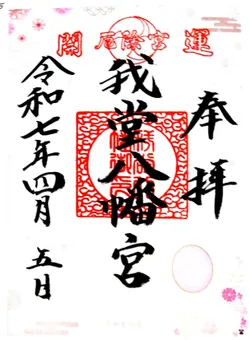 開運 厄除宮
奉拝
我堂八幡宮
令和七年四月五日